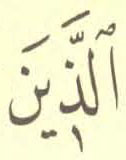 ٱلَّذِينَ
١